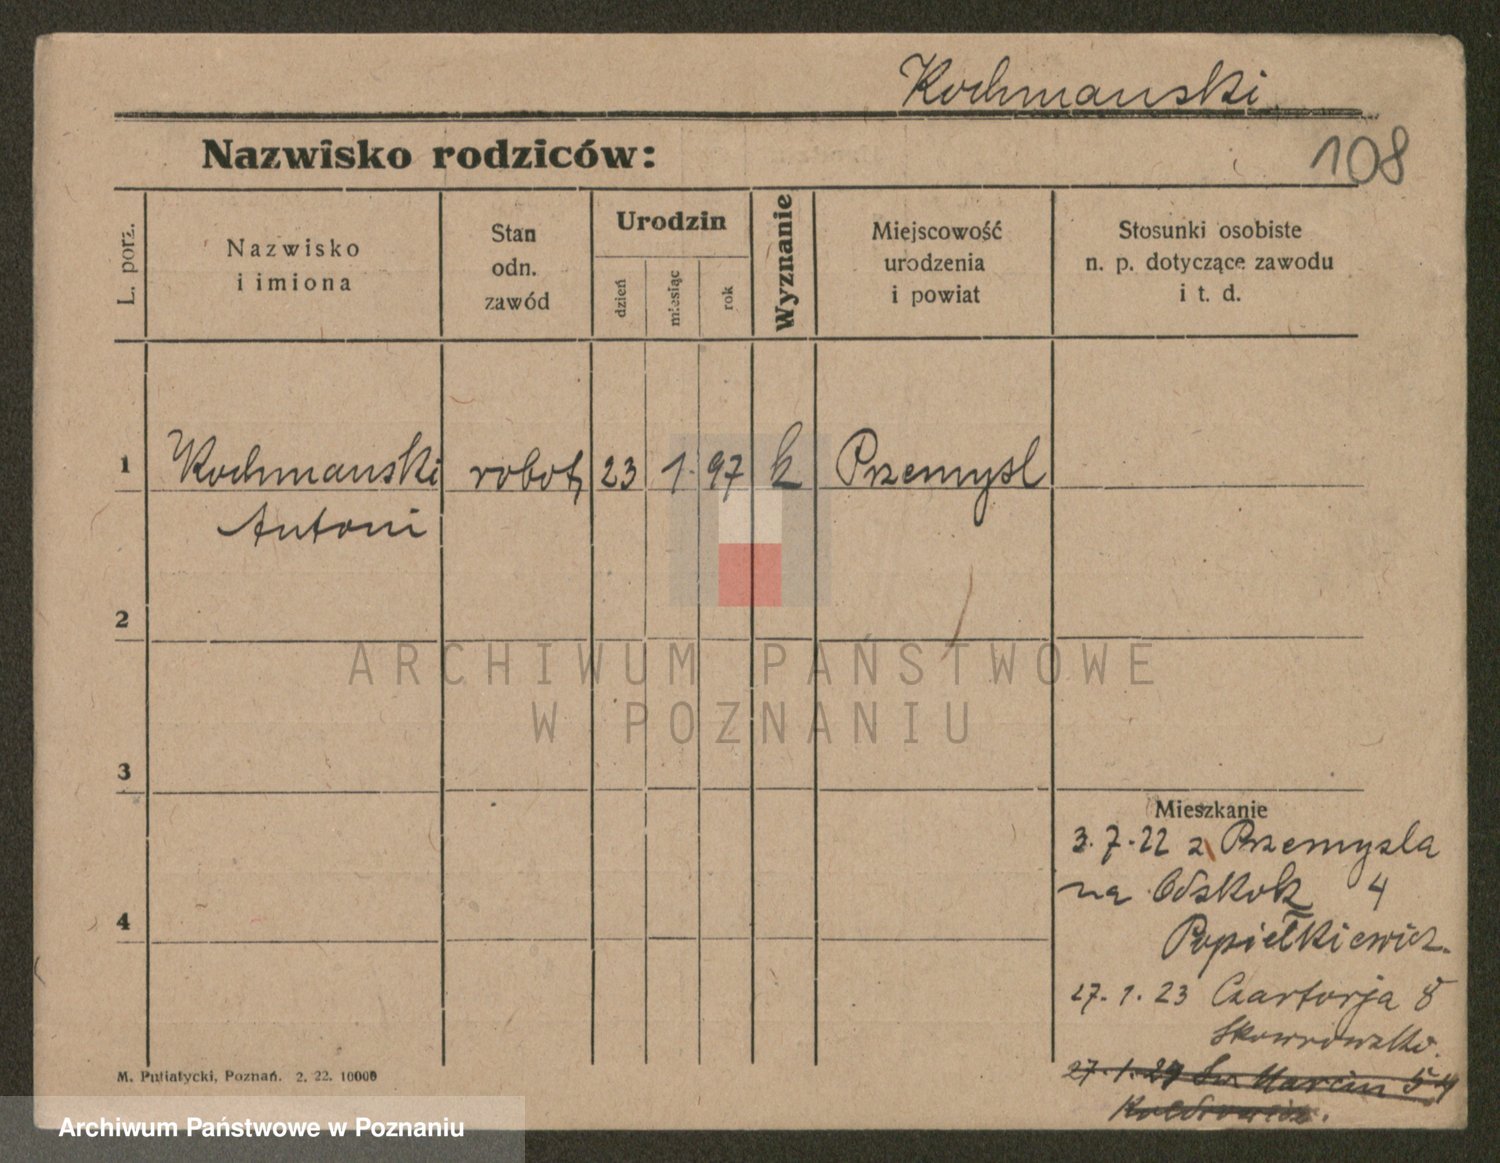 Kochmanski
Nazwisko rodziców:
108
L. porz.
Nazwisko
i imiona
Stan
odn.
zawód
Urodzin
dzień
miesiąc
rok
Wyznanie
Miejscowość
urodzenia
i powiat
Stosunki osobiste
n. p. dotyczące zawodu
i t. d.
1
Kochmanski robot, 23 1. 97 k Przemysl
Antoni
2
ARCHIWUM PAŃSTWOWE
W POZNANIU
3
Mieszkanie
3. 7. 22 z Przemysla
na Odskok 4
Popiełkiewicz.
4
27. 1. 23 Czartorja 8
27. 1. 24 Św. Marcin 54
M. Putiatycki, Poznań. 2. 22. 10000
Archiwum Państwowe w Poznaniu